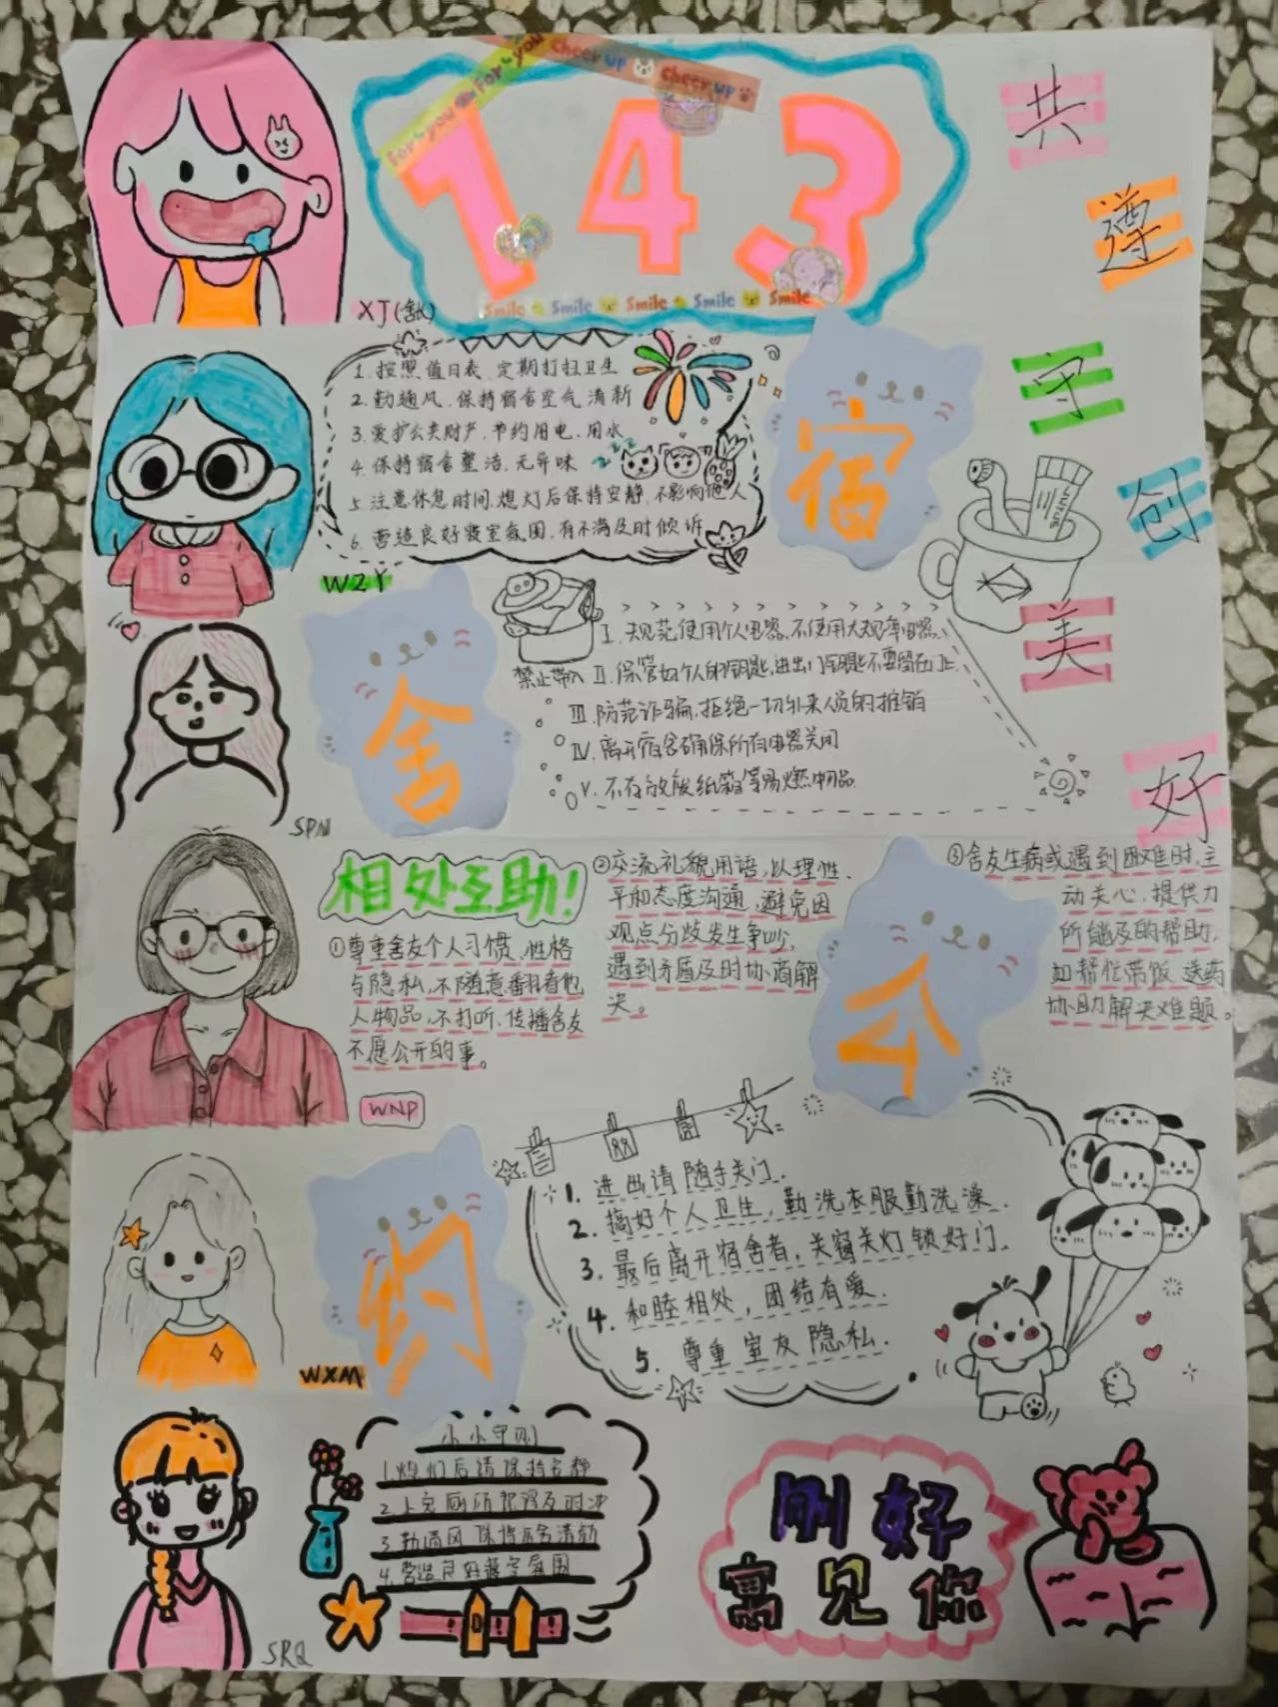 for you for you
cheer up cheer up
143
Smile Smile Smile Smile Smile
共
遵
守
创
美
好
XJ(舍长)
1.按照值日表 定期打扫卫生
2.勤通风.保持宿舍空气清新
3.爱护公共财产.节约用电、用水
4.保持宿舍整洁.无异味
5.注意休息时间.熄灯后保持安静.不影响他人
6.营造良好寝室氛围.有不满及时倾诉
宿
WZY
舍
禁止带入
Ⅰ.规范使用个人电器.不使用大规率电器.
Ⅱ.保管好个人的钥匙,进出门钥匙不要留在门上.
Ⅲ.防范诈骗,拒绝一切外来人员的推销
Ⅳ.离开宿舍确保所有电器关闭
Ⅴ.不存放废纸箱等易燃物品.
SPN
相处互助!
①尊重舍友个人习惯、性格
与隐私,不随意翻看他
人物品,不打听、传播舍友
不愿公开的事。
②交流礼貌用语,以理性、
平和态度沟通,避免因
观点分歧发生争吵,
遇到矛盾及时协商解
决。
③舍友生病或遇到困难时,主
动关心,提供力
所能及的帮助,
如帮忙带饭、送药
协助解决难题。
WNP
公
约
1.进出请随手关门.
2.搞好个人卫生,勤洗衣服勤洗澡.
3.最后离开宿舍者,关窗关灯锁好门.
4.和睦相处,团结有爱.
5.尊重室友隐私.
WXM
小小守则
1.熄灯后请保持安静
2.上完厕所记得及时冲
3.勤通风 保持宿舍清新
4.营造良好寝室氛围
SRQ
刚好
寓见你